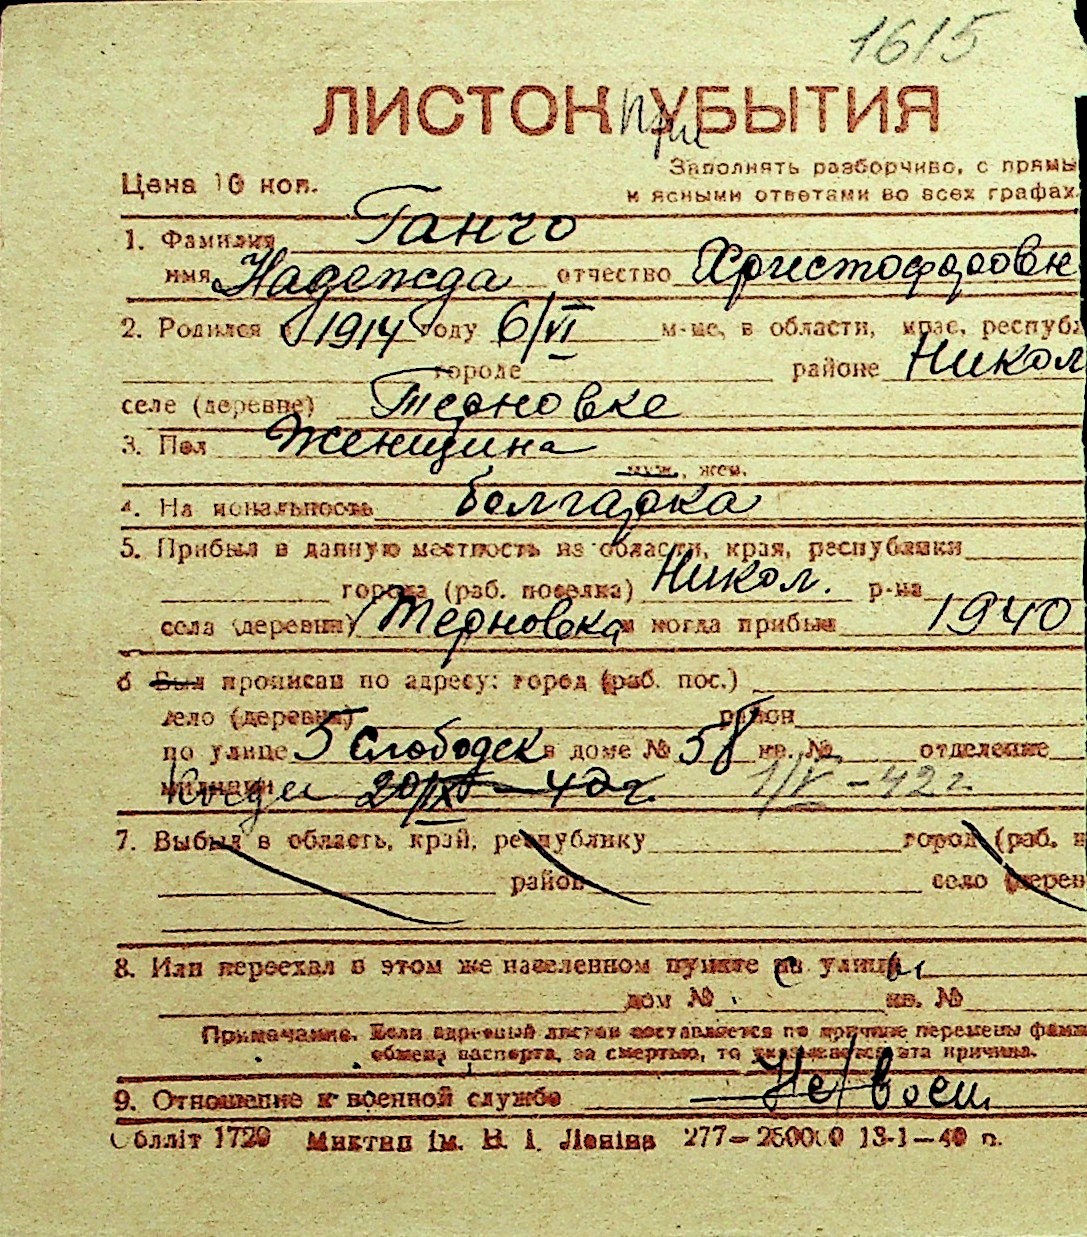 1615
ЛИСТОК при УБЫТИЯ
Заполнять разборчиво, с прямы
Цена 10 коп.
и ясными ответами во всех графах.
1. Фамилия Ганчо
имя Надежда отчество Христофоровн
2. Родился в 1914 году 6/VI м-це, в области, крае, республ
городе районе Никол
селе (деревне) Терновке
3. Пол Женщина
муж., жен.
4. Национальность болгарка
5. Прибыл в данную местность из области, края, республики
города (раб. поселка) Никол. р-на
села (деревни) Терновка и когда прибыл 1940
6 Был прописан по адресу: город (раб. пос.)
село (деревня) район
по улице 5 Слободск в доме № 58 кв. № отделение
милиции Когда 20/IX – 42 г. 1/V – 42 г.
7. Выбыл в область, край, республику город (раб. п
район село (дерев
8. Или переехал в этом же населенном пункте на улицы
дом № кв. №
Примечание. Если адресный листок составляется по причине перемены фами
обмена паспорта, за смертью, то указывается эта причина.
9. Отношение к военной службе Не/воен
Обллiт 1720 Миктип iм. В. I. Ленiна 277–250000 13-1–40 п.